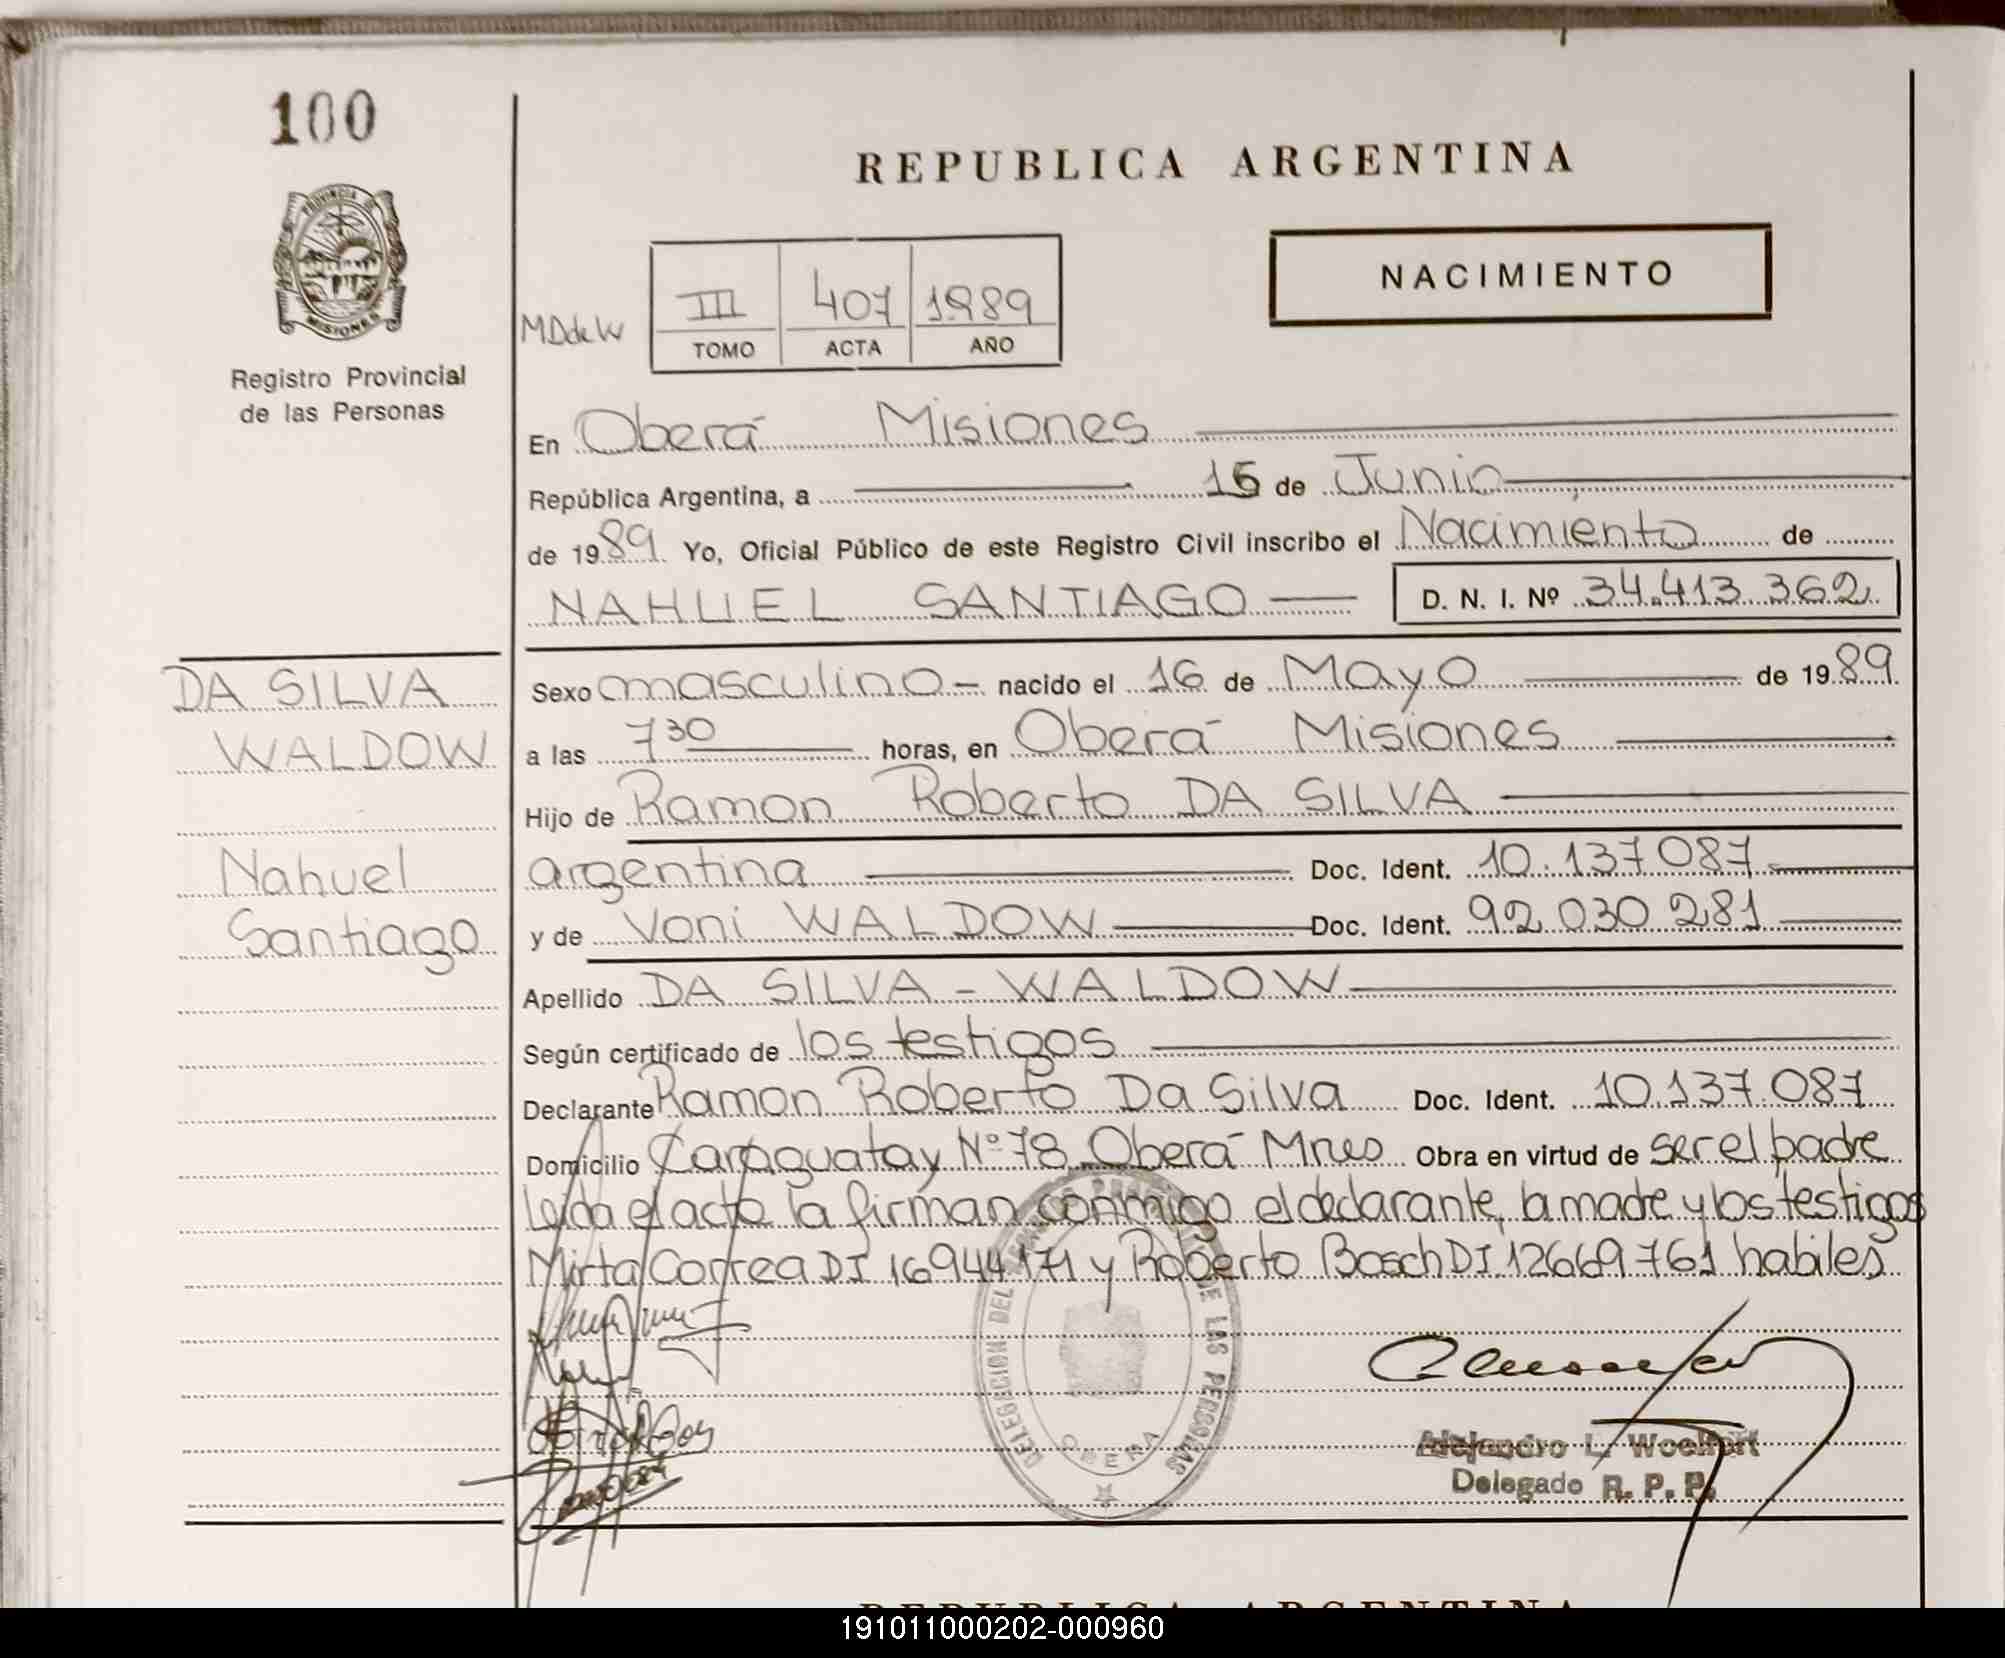 100
REPUBLICA ARGENTINA
PROVINCIA DE
MISIONES
NACIMIENTO
MDdeW
III 407 1989
TOMO ACTA AÑO
Registro Provincial
de las Personas
En Oberá Misiones
República Argentina, a 15 de Junio
de 1989 Yo, Oficial Público de este Registro Civil inscribo el Nacimiento de
NAHUEL SANTIAGO D. N. I. Nº 34.413.362
DA SILVA
WALDOW
Nahuel
Santiago
Sexo masculino - nacido el 16 de Mayo de 1989
a las 7 30 horas, en Oberá Misiones
Hijo de Ramon Roberto DA SILVA
argentina Doc. Ident. 10.137.087
y de Voni WALDOW Doc. Ident. 92.030.281
Apellido DA SILVA - WALDOW
Según certificado de los testigos
Declarante Ramon Roberto Da Silva Doc. Ident. 10.137.087
Domicilio Caraguatay Nº 78 Oberá Mnes Obra en virtud de ser el padre
Leida el acta la firman conmigo el declarante, la madre y los testigos
Mirta Correa DI 16944171 y Roberto Bosch DI 12669761 habiles
DELEGACION DEL DE LAS PERSONAS
OBERA
Alejandro L. Woelfert
Delegado R. P. P.
REPUBLICA ARGENTINA
191011000202-000960